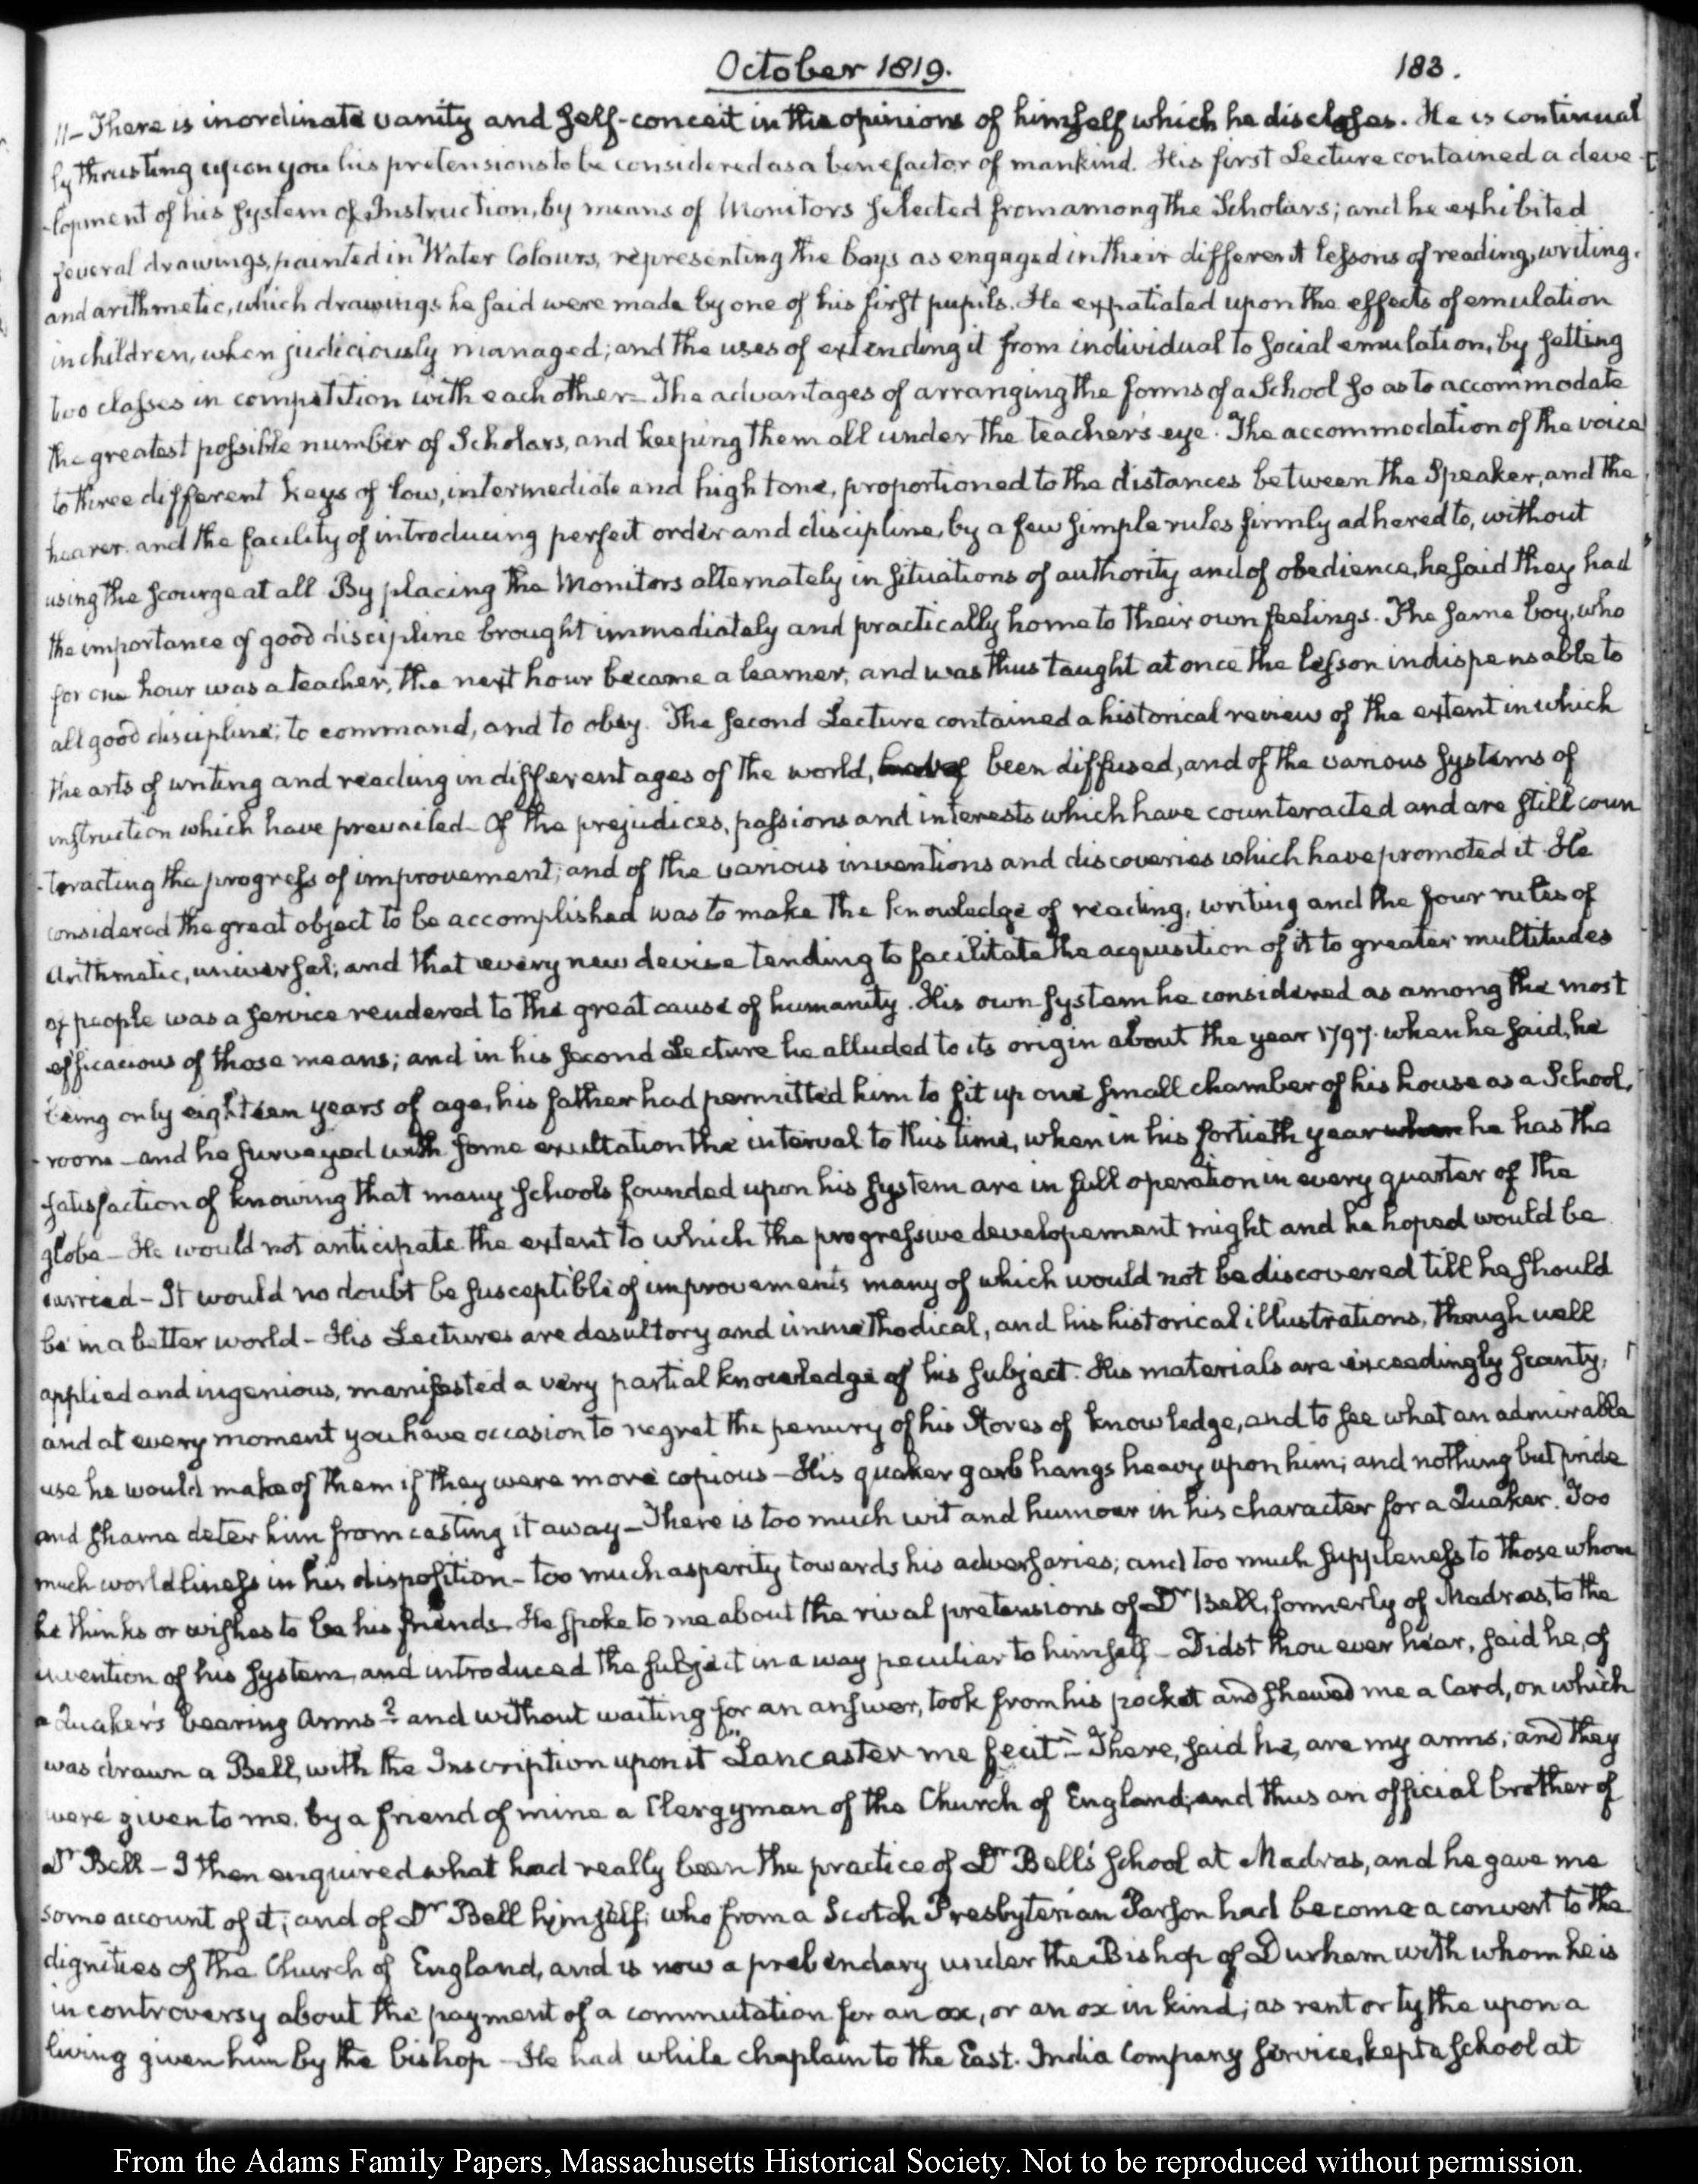 October 1819.
183.
11 – There is inordinate vanity and self-conceit in the opinions of himself which he discloses. He is continual
ly thrusting upon you his pretensions to be considered as a benefactor of mankind. His first Lecture contained a deve
-lopment of his system of Instruction, by means of Monitors selected from among the Scholars; and he exhibited
several drawings, painted in Water Colours, representing the boys as engaged in their different lessons of reading, writing,
and arithmetic, which drawings he said were made by one of his first pupils. He expatiated upon the effects of emulation
in children, when judiciously managed; and the uses of extending it from individual to social emulation, by setting
two classes in competition with each other – The advantages of arranging the forms of a School so as to accommodate
the greatest possible number of Scholars, and keeping them all under the teacher's eye. The accommodation of the voice
to three different keys of low, intermediate and high tone, proportioned to the distances between the Speaker, and the
hearer. and the facility of introducing perfect order and discipline, by a few simple rules firmly adhered to, without
using the scourge at all. By placing the Monitors alternately in situations of authority and of obedience, he said they had
the importance of good discipline brought immediately and practically home to their own feelings. The same boy, who
for one hour was a teacher, the next hour became a learner, and was thus taught at once the lesson indispensable to
all good discipline; to command, and to obey. The second Lecture contained a historical review of the extent in which
the arts of writing and reading in different ages of the world, been diffused, and of the various systems of
instruction which have prevailed – Of the prejudices, passions and interests which have counteracted and are still coun
-teracting the progress of improvement; and of the various inventions and discoveries which have promoted it. He
considered the great object to be accomplished was to make the knowledge of reading, writing and the four rules of
Arithmatic, universal; and that every new device tending to facilitate the acquisition of it to greater multitudes
of people was a service rendered to the great cause of humanity. His own system he considered as among the most
efficacious of those means; and in his second Lecture he alluded to its origin about the year 1797. when he said, he
being only eighteen years of age, his father had permitted him to fit up one small chamber of his house as a School,
-room – and he surveyed with some exultation the interval to this time, when in his fortieth year when he has the
satisfaction of knowing that many schools founded upon his system are in full operation in every quarter of the
globe – He would not anticipate the extent to which the progressive developement might and he hoped would be
carried – It would no doubt be susceptible of improvements many of which would not be discovered till he should
be in a better world – His Lectures are desultory and unmethodical, and his historical illustrations, though well
applied and ingenious, manifested a very partial knowledge of his subject. His materials are exceedingly scanty,
and at every moment you have occasion to regret the penury of his stores of knowledge, and to see what an admirable
use he would make of them if they were more copious – His quaker garb hangs heavy upon him; and nothing but pride
and shame deter him from casting it away – There is too much wit and humour in his character for a Quaker. Too
much worldliness in his disposition – too much asperity towards his adversaries; and too much suppleness to those whom
he thinks or wishes to be his friends. He spoke to me about the rival pretensions of Dr. Bell, formerly of Madras, to the
invention of his system, and introduced the subject in a way peculiar to himself – Didst thou ever hear, said he, of
a Quaker's bearing Arms? and without waiting for an answer, took from his pocket and shewed me a Card, on which
was drawn a Bell, with the Inscription upon it "Lancaster me fecit" – There, said he, are my arms; and they
were given to me, by a friend of mine a Clergyman of the Church of England; and thus an official brother of
Dr. Bell – I then enquired what had really been the practice of Dr. Bell's school at Madras, and he gave me
some account of it; and of Dr. Bell himself; who from a Scotch Presbyterian Parson had become a convert to the
dignities of the Church of England, and is now a prebendary under the Bishop of Durham with whom he is
in controversy about the payment of a commutation for an ox, or an ox in kind; as rent or tythe upon a
living given him by the bishop – He had while chaplain to the East. India Company service, kept a school at
From the Adams Family Papers, Massachusetts Historical Society. Not to be reproduced without permission.